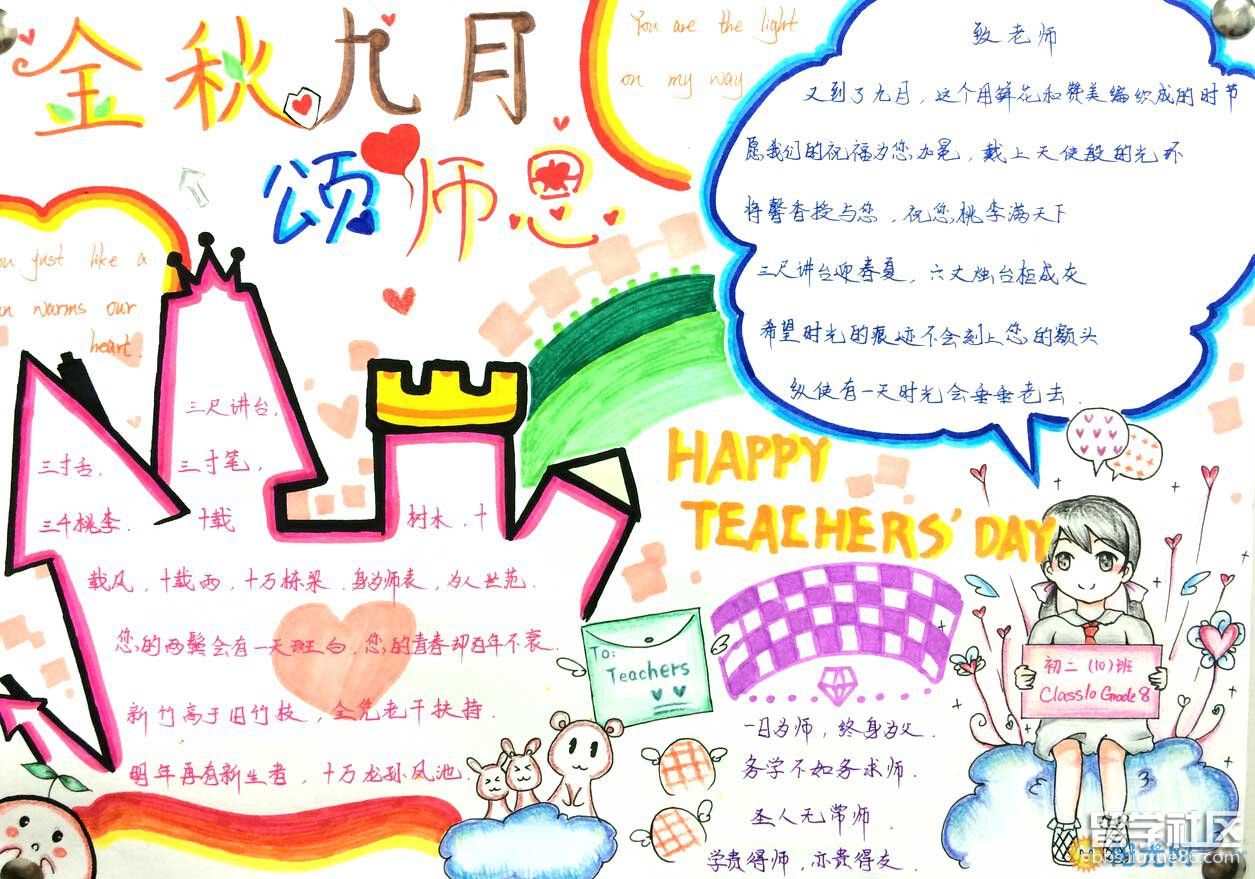 金秋九月
颂师恩
You are the light
on my way
致老师
又到了九月，这个用鲜花和赞美编织成的时节
愿我们的祝福为您加冕，戴上天使般的光环
将馨香授与您，祝您桃李满天下
三尺讲台迎春夏，六丈烛台柜成灰
希望时光的痕迹不会刻上您的额头
纵使有一天时光会垂垂老去.
just like a
warms our
heart.
三尺讲台，
三寸舌，
三寸笔，
三千桃李.
十载
树木，十
载风，十载雨，十万栋梁.身为师表，为人世范.
您的两鬓会有一天斑白，您的青春却百年不衰.
新竹高于旧竹枝，全凭老干扶持.
明年再有新生者，十万龙孙凤池.
HAPPY
TEACHERS' DAY
To:
Teachers
初二（10）班
Class10 Grade8
一日为师，终身为父.
务学不如务求师.
圣人无常师.
学贵得师，亦贵得友.
留学社区